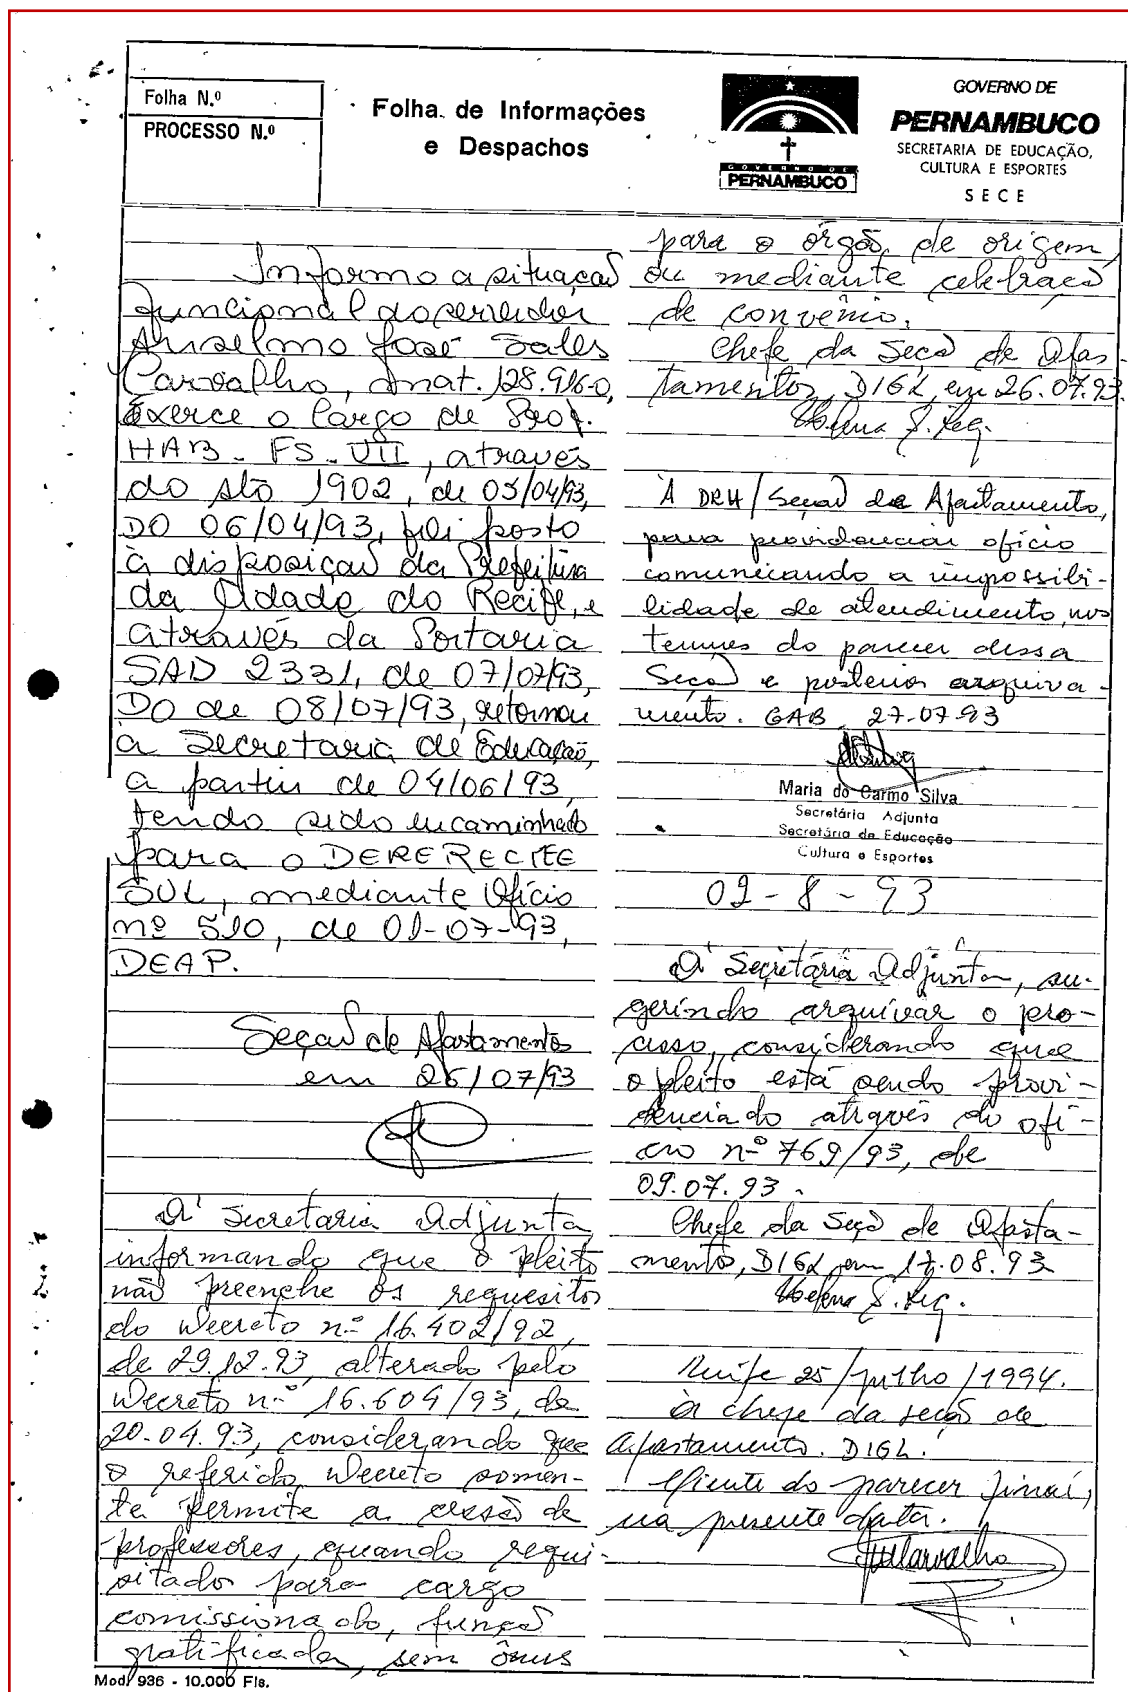 Folha N.º
PROCESSO N.º
Folha de Informações
e Despachos
GOVERNO DE
PERNAMBUCO
GOVERNO DE
PERNAMBUCO
SECRETARIA DE EDUCAÇÃO,
CULTURA E ESPORTES
SECE
Informo a situação
funcional do servidor
Anselmo José Sales
Carvalho, mat. 128.916-0,
Exerce o Cargo de Prof.
HAB - FS - VII, através
do Ato 1902, de 05/04/93,
DO 06/04/93, foi posto
à disposição da Prefeitura
da Cidade do Recife, e
através da Portaria
SAD 2331, de 07/07/93,
DO de 08/07/93, retornou
a Secretaria de Educação,
a partir de 04/06/93,
tendo sido encaminhado
para o DERE RECIFE
SUL, mediante Ofício
nº 510, de 01-07-93,
DEAP.
Seção de Afastamentos
em 26/07/93
À Secretaria Adjunta,
informando que o pleito
não preenche os requesitos
do Decreto n.º 16.402/92,
de 29.12.93, alterado pelo
Decreto n.º 16.604/93, de
20.04.93, considerando que
o referido Decreto somen-
te permite a cessão de
professores, quando requi-
sitado para cargo
comissionado, função
gratificada, sem ônus
para o órgão de origem,
ou mediante celebração
de convênio.
Chefe da Seção de Afas-
tamentos, DIGL, em 26.07.93.
À DRH/Seção de Afastamento,
para providenciar ofício
comunicando a impossibi-
lidade de atendimento, nos
termos do parecer dessa
Seção e posterior arquiva-
mento. GAB 27-07-93
Maria do Carmo Silva
Secretária Adjunta
Secretária de Educação
Cultura e Esportes
02-8-93
À Secretária Adjunta, su-
gerindo arquivar o pro-
cesso, considerando que
o pleito está sendo provi-
denciado através do ofí-
cio nº 769/93, de
09.07.93.
Chefe da Seção de Afasta-
mento, DIGL em 17.08.93
Recife 25/julho/1994.
à chefe da seção de
Afastamento. DIGL.
Ciente do parecer final,
na presente data.
Carvalho
Mod. 936 - 10.000 Fls.